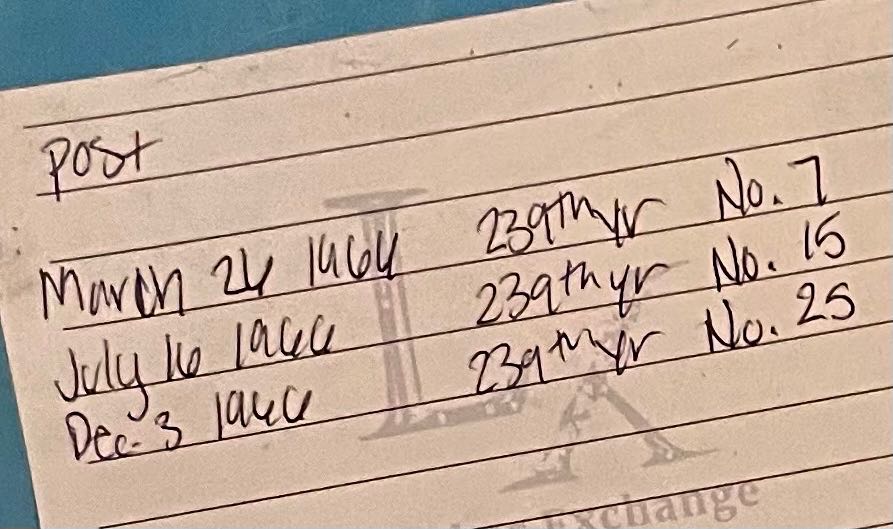 Post
March 26 1966 239th yr No. 7
July 16 1966 239th yr No. 15
Dec. 3 1966 239th yr No. 25
L A
Exchange